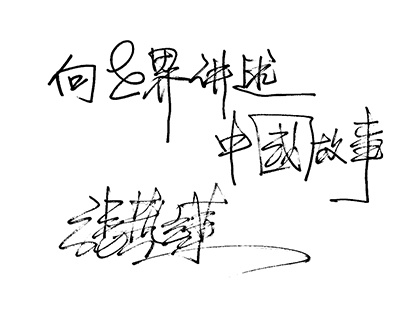 向世界讲述
中國故事